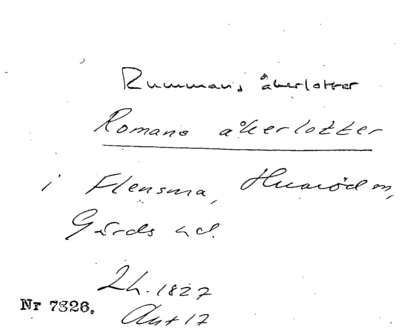 Rummans åkerlotter
Romans åkerlotter
i Flensma, Huaröd sn,
Gärds hd.
Lh. 1827
Akt 17
Nr 7326.